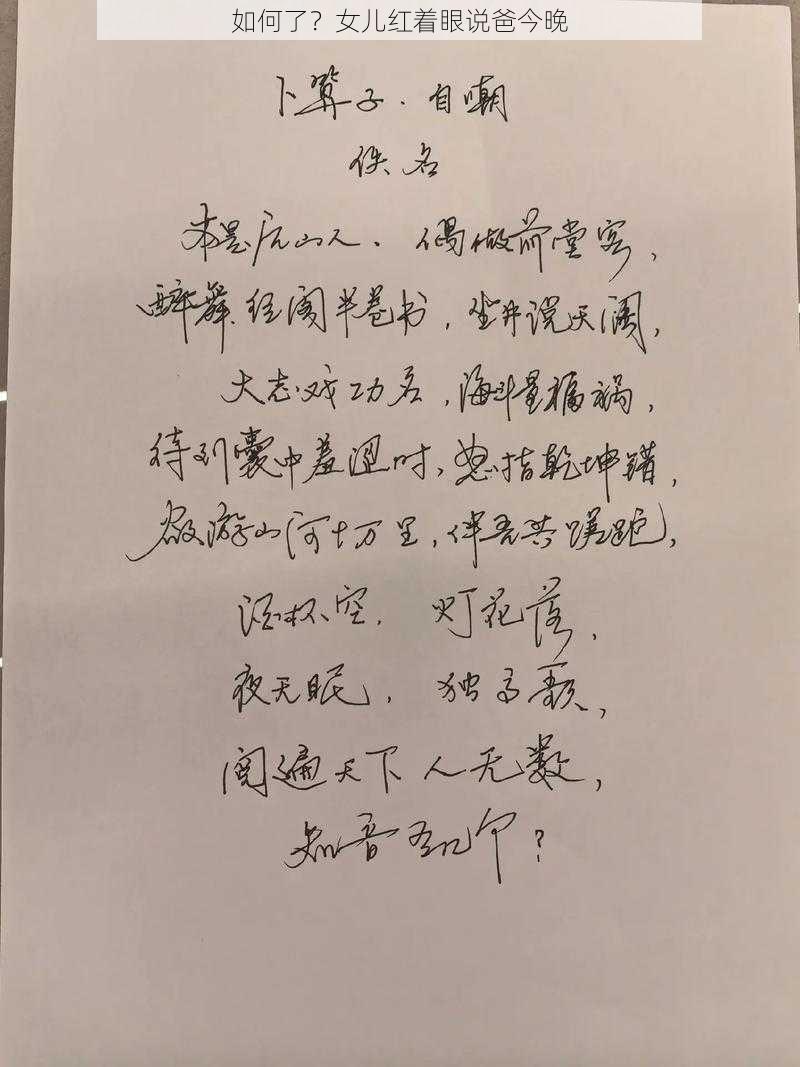 如何了？女儿红着眼说爸今晚
卜算子·自嘲
佚名
本是后山人、偶做前堂客，
醉舞经阁半卷书，坐井说天阔，
大志戏功名，海斗量福祸，
待到囊中羞涩时，怒指乾坤错，
欲游山河十万里，伴吾共蹉跎，
酒杯空，灯花落，
夜无眠，独高歌，
阅遍天下人无数，
知音有几个？